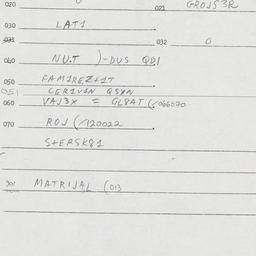 020 021 GROJS3R
030 LAT1
031 032 0
040 NUT )-DUS QD1
050 FAM1REZ+1T
051 CER1V4N QSYN
060 VAJ3X = GL8AT (/066070
070 ROJ (/120022
S+ERSK81
901 MATRIJAL (013